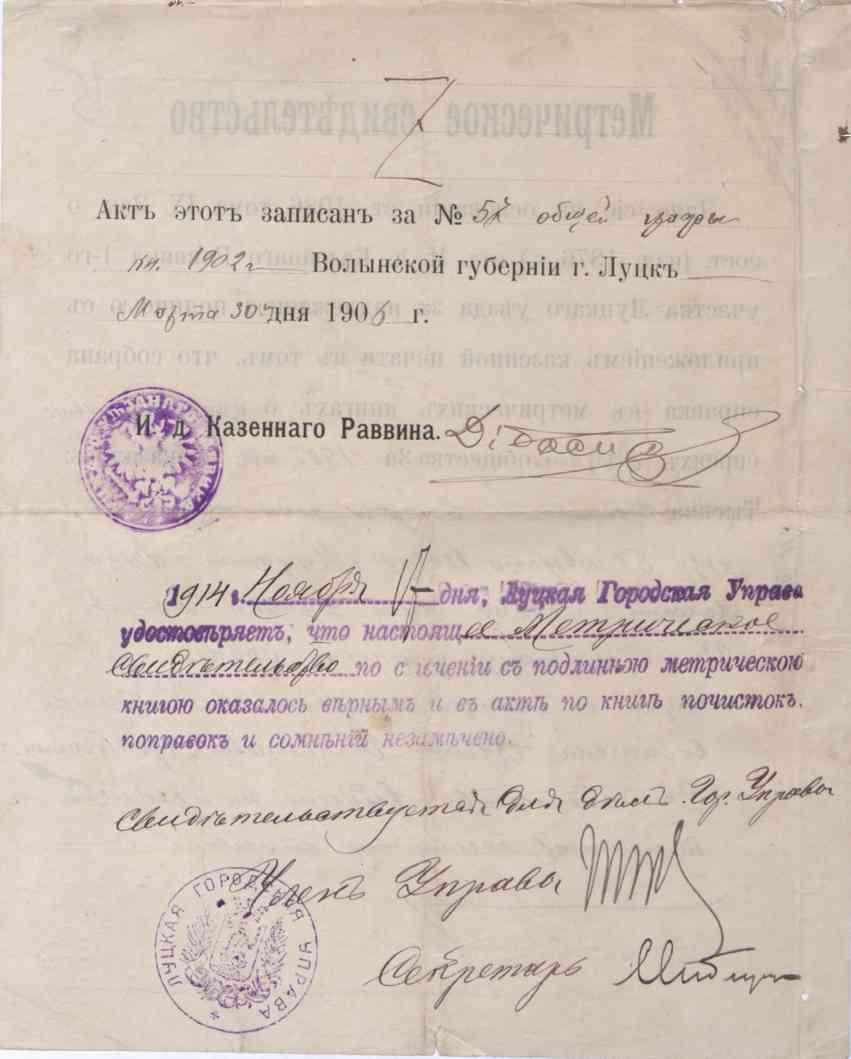 Актъ этотъ записанъ за № 57 общей графы
кн. 1902 г Волынской губерніи г. Луцкъ
Марта 30 дня 1906 г.
И. д. Казеннаго Раввина.
1914 г. Ноября дня, Луцкая Городская Управа
удостовѣряетъ, что настоящее Метрическое
Свидѣтельство по сличеніи съ подлинною метрическою
книгою оказалось вѣрнымъ и въ актѣ по книгѣ почистокъ,
поправокъ и сомнѣній незамѣчено.
Свидѣтельствуется для дѣлъ Гор. Управы
Членъ Управы
Секретарь
ЛУЦКАЯ ГОРОДСКАЯ УПРАВА